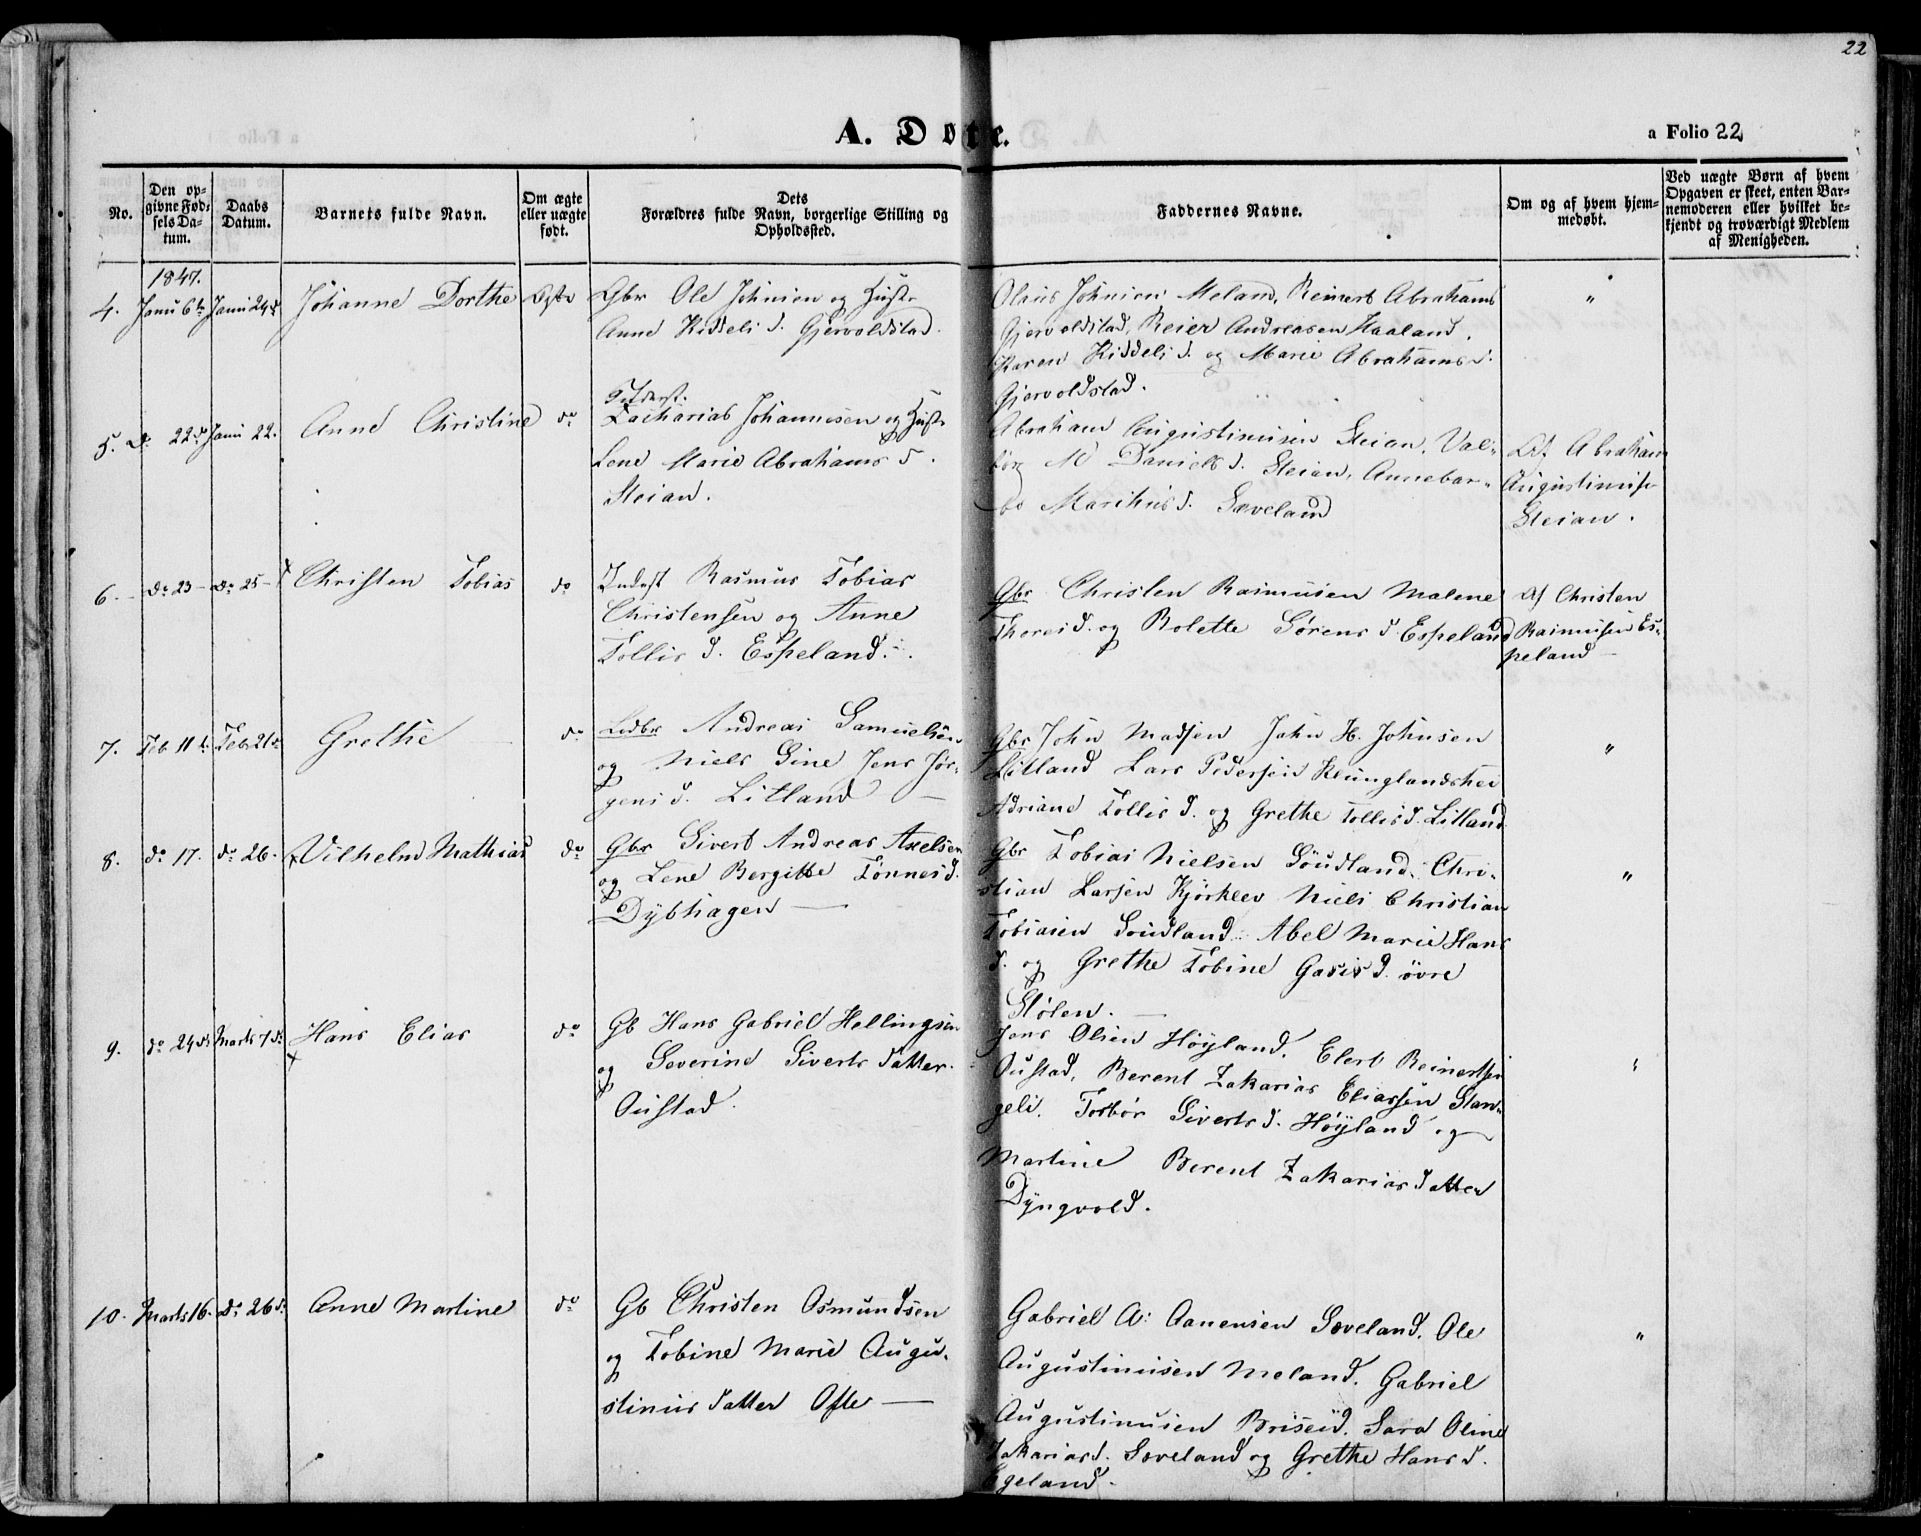 22
A. Døte.
a Folio 22
No.
Den op-
givne Fød-
sels Da-
tum.
Daabs
Datum.
Barnets fulde Navn.
Om ægte
eller uægte
født.
Dets
Forældres fulde Navn, borgerlige Stilling og
Opholdssted.
Faddernes Navne.
Om og af hvem hjem-
medøbt.
Ved uægte Børn af hvem
Opgaven er skeet, enten Bar-
nemoderen eller hvilket be-
kjendt og troværdigt Medlem
af Menigheden.
1847.
4. Janu 6te Janu 24de Johanne Dorthe Ægte
Gbr Ole Johnsen og Hustr
Anne Kiddelsd. Gjervoldstad.
Olaus Johnsen Meland, Reinert Abrahams
Gjervoldstad, Reier Andreasen Haaland.
Karen Kiddelsd. og Marie Abrahamsd.
Gjervoldstad.
"
5. Do 22de Janu 22. Anne Christine do
Zacharias Johannesen og Hustr
Lene Marie Abrahams d.
Steian.
Abraham Augustinusen Steian, Val-
bor M Danielsd. Steian, Annebar-
be Marthisd. Sæveland
Af Abraham
Augustinuse
Steian.
6. do 23 do 25 Christen Tobias do
Inderst Rasmus Tobias
Christensen og Anne
Tollisd. Espeland.
Gbr Christen Rasmusen Malene
Theresd. og Bolette Sørensd Espeland
Af Christen
Rasmusen Es-
peland
7. Feb 11te Feb 21de Grethe do
Ledbr Andreas Samuelsen
og Niels Gine Jens Jør-
gensd. Litland
Gbr John Madsen John H. Johnsen
Litland Lars Pedersen Klunglandshei
Adriane Tollisd. og Grethe Tollisd. Litland
"
8. do 17. do 26. Vilhelm Mathias do
Gbr Sivert Andreas Axelsen
og Lene Bergitte Tønnesd.
Dybhagen
Gbr Tobias Nielsen Søudland. Chri-
stian Larsen Kjørklev Niels Christian
Tobiasen Soudland. Abel Marie Hans
d. og Grethe Tobine Gasisd. øvre
Stølen.
"
9. do 24de Marts 7de Hans Elias do
Gb Hans Gabriel Hellingsen
og Severine Siverts datter.
Oustad.
Jens Olsen Høyland. Elert Reinertsen
Oustad, Berent Zakarias Eliassen Stan-
geli. Torbør Sivertsd. Høyland og
Martine Berent Zakariasdatter
Dyngvold.
"
10. Marts 16. do 26de Anne Martine do
Gb Christen Osmundsen
og Tobine Marie Augu-
stinusdatter Ofte
Gabriel A: Aanensen Sæveland. Ole
Augustinusen Meland. Gabriel
Augustinusen Briseid. Sara Oline
Zakariasd. Sæveland og Grethe Hansd.
Egeland.
"